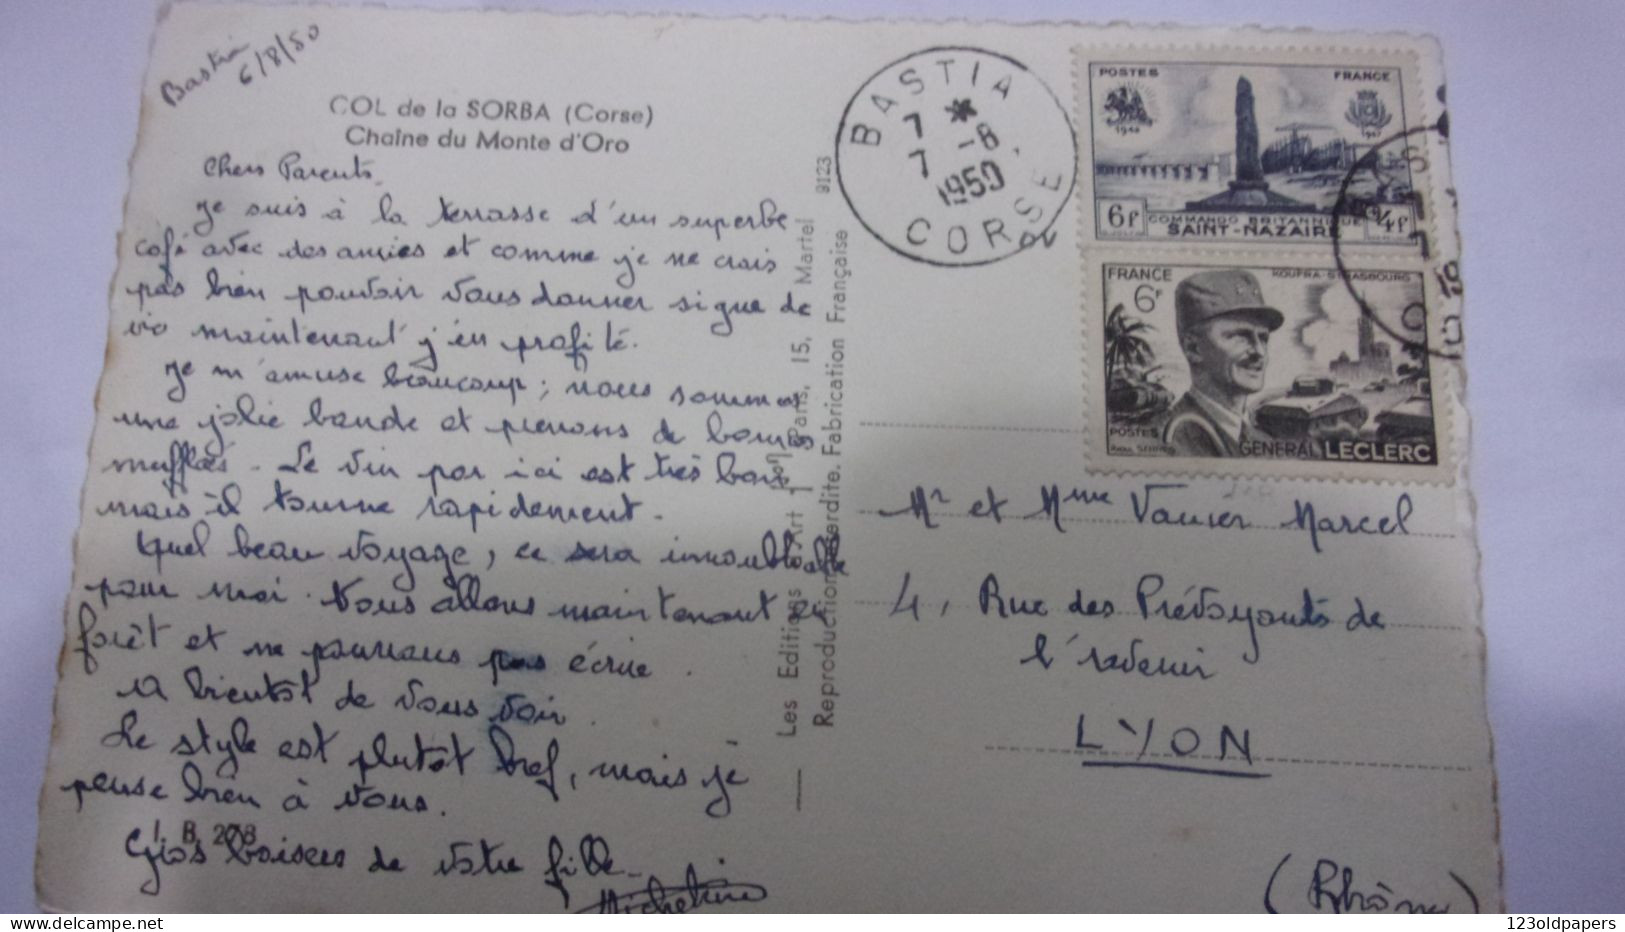 Bastia
6/8/50
COL de la SORBA (Corse)
Chaîne du Monte d'Oro
Chers Parents.
Je suis à la terrasse d'un superbe
café avec des amies et comme je ne crois
pas bien pouvoir vous donner signe de
vie maintenant j'en profite.
Je m'amuse beaucoup ; nous sommes
une jolie bande et prenons de bonnes
mufflées. Le vin par ici est très bon
mais il tourne rapidement.
Quel beau voyage, ce sera inoubliable
pour moi. Nous allons maintenant en
forêt et ne pourrons pas écrire.
A bientôt de vous voir.
Le style est plutôt bref, mais je
pense bien à vous.
I. B. 208
Gros baisers de votre fille.
Micheline
Les Editions d'Art
Paris, 15, Martel
9123
Reproduction Interdite. Fabrication Française
BASTIA
7 * 7 -8
1950
CORSE
POSTES FRANCE
6f COMMANDO BRITANNIQUE +4f
SAINT-NAZAIRE
FRANCE KOUFRA-STRASBOURG
6f
POSTES
GÉNÉRAL LECLERC
Mr et Mme Vanier Marcel
4, Rue des Prévoyants de
l'avenir
LYON
(Rhône)
123oldpapers